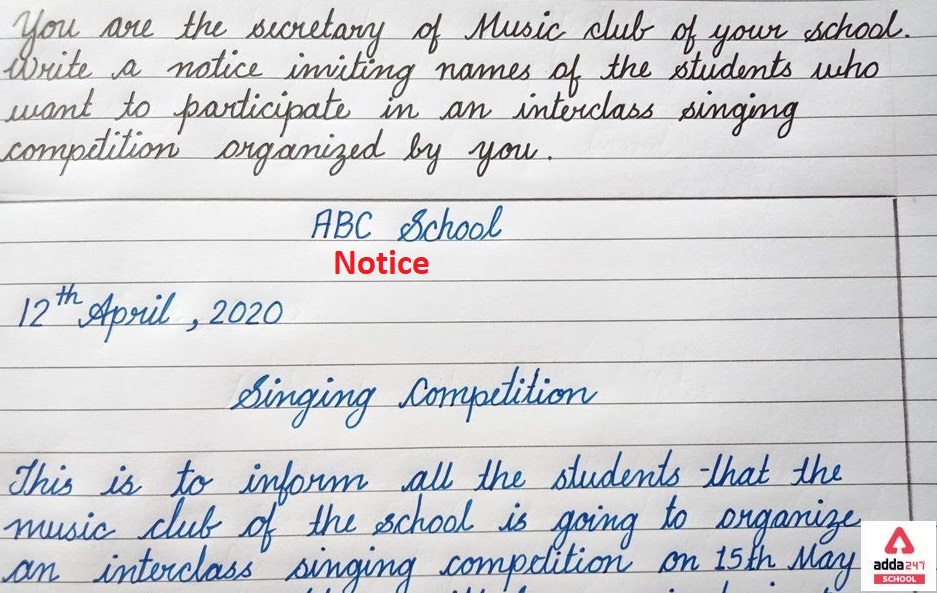 You are the secretary of Music club of your school.
Write a notice inviting names of the students who
want to participate in an interclass singing
competition organized by you.
ABC School
Notice
12th April, 2020
Singing Competition
This is to inform all the students that the
music club of the school is going to organize
an interclass singing competition on 15th May
adda247
SCHOOL